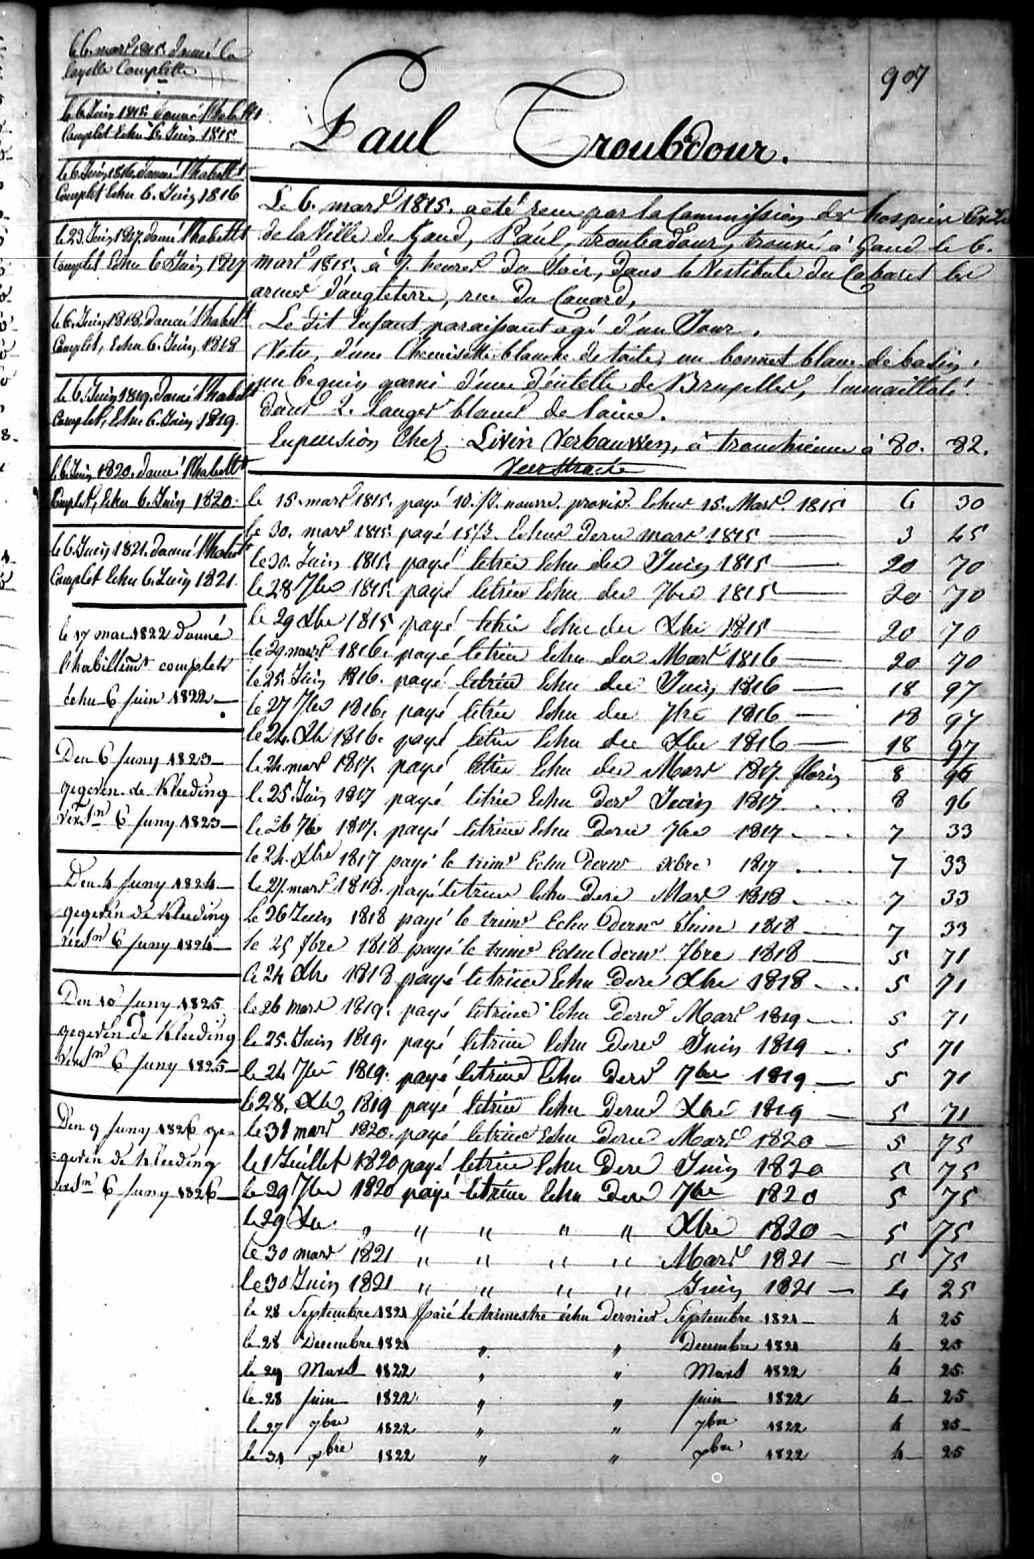 907
Paul Troubdour.
le 6. mars 1815. donné la
layette Complette
le 6 Juin 1815. donné l'habellt
Complet Echu 6. Juin 1815
le 6. Juin 1816. donné l'habellt
Complet Echu 6. Juin 1816
le 23. Juin 1817. donné l'habellt
Complet Echu 6 Juin 1817
le 6. Juin 1818. donné l'habellt
Complet, Echu 6. Juin 1818
le 6. Juin 1819. donné l'habellt
Complet, Echu 6. Juin 1819
le 6. Juin 1820. donné l'habellt
Complet, Echu 6. Juin 1820.
le 6 Juin 1821. donné l'habellt
Complet Echu 6. Juin 1821.
le 17 mai 1822 donné
l'habillemt complet
échu 6 juin 1822
Den 6 Juny 1823
gegeven de Kleeding
versn 6 Juny 1823
Den 4 Juny 1824
gegeven de Kleeding
versn 6 Juny 1824
Den 10 Juny 1825
gegeven de Kleeding
versn 6 Juny 1825
Den 9 Juny 1826 ge-
geven de Kleeding
versn 6 Juny 1826
Le 6. mars 1815. a été recu par la Commission des hospices Civils
de la Ville de Gand, Paul, troubadour, trouvé à Gand le 6.
mars 1815. à 7 heures du Soir, dans le Vestibule du Cabaret les
armes d'angleterre, rue du Canard,
Le dit Enfant paraissant agé d'un Jour.
Vetu, d'une Chemisette blanche de toile, un bonnet blanc de basin,
un beguin garni d'une déntelle de Bruxelles, Emmailloté
dans 2. langes blancs de laine.
En pension Chez Livin Verbauwen, à tronchienne à 80. 82.
le 15. mars 1815. payé 10. fs. nourre. provis. Echus 15. Mars 1815 6 30
le 30. mars 1815. payé 15 fs. Echus derer mars 1815 3 45
le 30. Juin 1815. payé letrime Echu der Juin 1815 20 70
le 28 7bre 1815. payé letrime Echu der 7bre 1815 20 70
le 29 Xbre 1815 payé letrime Echu der Xbre 1815 20 70
le 29 mars 1816. payé letrime Echu der Mars 1816 20 70
le 25. Juin 1816. payé letrime Echu der Juin 1816 18 97
le 27 7bre 1816. payé letrime Echu der 7bre 1816 18 97
le 24. Xbre 1816. payé letrime Echu der Xbre 1816 18 97
le 24 mars 1817. payé letrime Echu der Mars 1817. florins 8 96
le 25 Juin 1817 payé letrime Echu der Juin 1817. 8 96
le 26 7bre 1817. payé letrime Echu derer 7bre 1817 7 33
le 24. Xbre 1817 payé le trime Echu derer xbre 1817 7 33
le 27. mars 1818. payé letrime Echu derer Mars 1818 7 33
le 26 Juin 1818 payé le trime Echu derer Juin 1818 7 33
le 25 7bre 1818 payé le trime Echu derer 7bre 1818 5 71
le 24 Xbre 1818 payé letrime Echu derer Xbre 1818 5 71
le 26 mars 1819. payé letrime Echu derer Mars 1819 5 71
le 25. Juin 1819. payé letrime Echu derer Juin 1819 5 71
le 24 7bre 1819. payé letrime Echu derer 7bre 1819 5 71
le 28. Xbre 1819 payé letrime Echu derer Xbre 1819 5 71
le 31 mars 1820. payé letrime Echu derer Mars 1820 5 75
le 1 Juillet 1820 payé letrime Echu derer Juin 1820 5 75
le 29 7bre 1820 payé letrime Echu derer 7bre 1820 5 75
le 29 Xbre " " " " " Xbre 1820 5 75
le 30 mars 1821 " " " " Mars 1821 5 75
le 30 Juin 1821 " " " " Juin 1821 4 25
le 28 Septembre 1821 payé le trimestre échu dernier Septembre 1821 4 25
le 28 Decembre 1821 " " Decembre 1821 4 25
le 29 Mars 1822 " " Mars 1822 4 25
le 28 juin 1822 " " juin 1822 4 25
le 27 7bre 1822 " " 7bre 1822 4 25
le 31 xbre 1822 " " xbre 1822 4 25